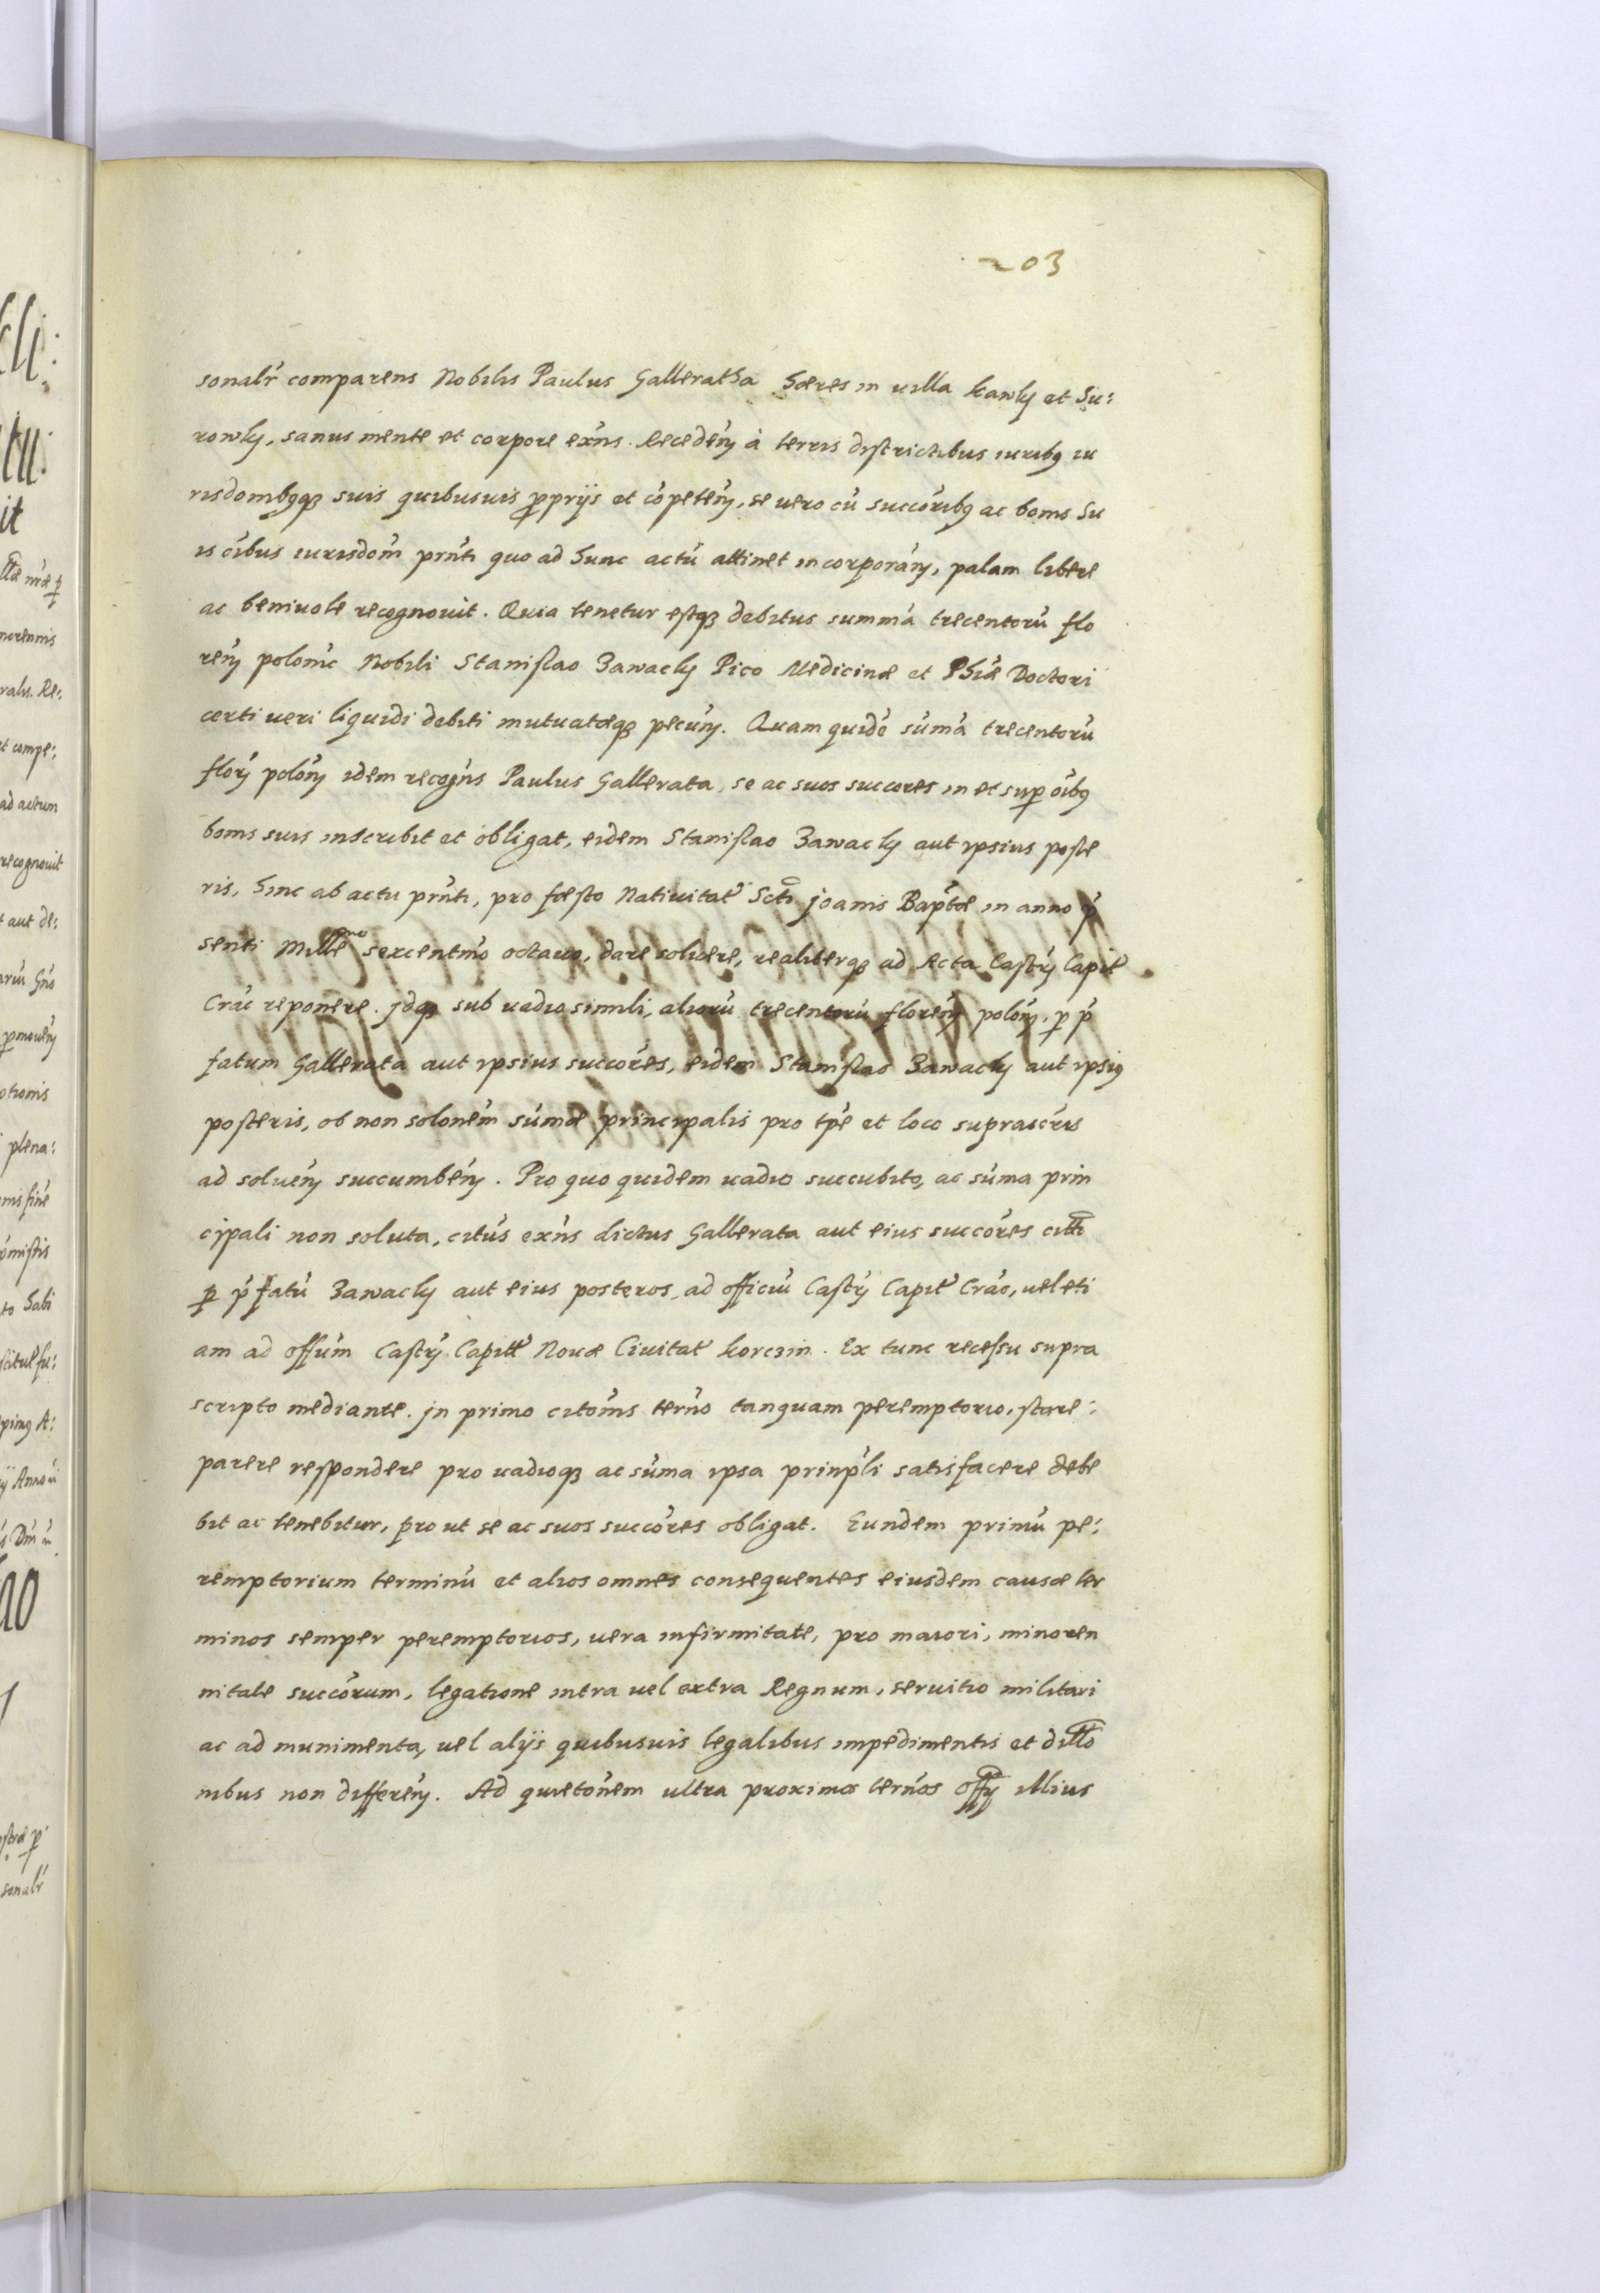 203
sonalr comparens Nobilis Paulus Galleratha hæres in uilla kawky et Su:
rowky, sanus mente et corpore exñs. Recedeñ à terris districtibus iuribȝ iu
risdombȝqȝ suis quibusuis proprijs et cõpeteñ, se uero cũ succoribȝ ac bonis su
is oĩbus iurisdom̃ prñti quo ad hunc actũ attinet incorporañ, palam libere
ac beniuole recognouit. Quia tenetur estqȝ debitus summã trecentorũ flo
reñ polonic Nobili Stanislao Zawacky Pico Medicinæ et Phiæ Doctori
certi ueri liquidi debiti mutuatæqȝ pecuñ. Quam quidẽ sũmã trecentorũ
floř poloñ idem recogñs Paulus Gallerata, se ac suos succores in et super oĩbȝ
bonis suis inscribit et obligat, eidem Stanislao Zawacky aut ipsius poste
ris, hinc ab actu prñti, pro festo Natiuitat Scti Joanis Baptæ in anno p̃
senti Mill̃eno sexcentm̃o octauo, dare soluere, realiterqȝ ad Acta Castr̃ Capit̃
Crac̃ reponere. Jdqȝ sub uadio simili, aliorũ trecentorũ floreñ poloñ, p p̃
fatum Gallerata aut ipsius succores, eidem Stanislao Zawacky aut ipsiȝ
posteris, ob non solonem sũmæ principalis pro tp̃e et loco suprascr̃is
ad solueñ succumbeñ. Pro quo quidem uadio succubito, ac sũma prin
cipali non soluta, citũs exñs dictus Gallerata aut eius succores citti
p p̃fatũ Zawacky aut eius posteros, ad officiũ Castr̃ Capit̃ Crac̃, uel eti
am ad offũm Castr̃ Capitt̃ Nouæ Ciuitat̃ korczin. Ex tunc recessu supra
scripto mediante. jn primo citom̃s term̃o tanquam peremptorio, stare:
parere respondere pro uadioqȝ ac sũma ipsa prinp̃li satisfacere debe
bit ac tenebitur, prout se ac suos succores obligat. Eundem primũ pe:
remptorium terminũ et alios omnes consequentes eiusdem causæ ter
minos semper peremptorios, uera infirmitate, pro maiori, minoren
nitate succorum, legatione intra uel extra Regnum, seruitio militari
ac ad munimenta, uel alijs quibusuis legalibus impedimentis et dillo
nibus non differeñ. Ad quietonem ultra proximos term̃os offij illius